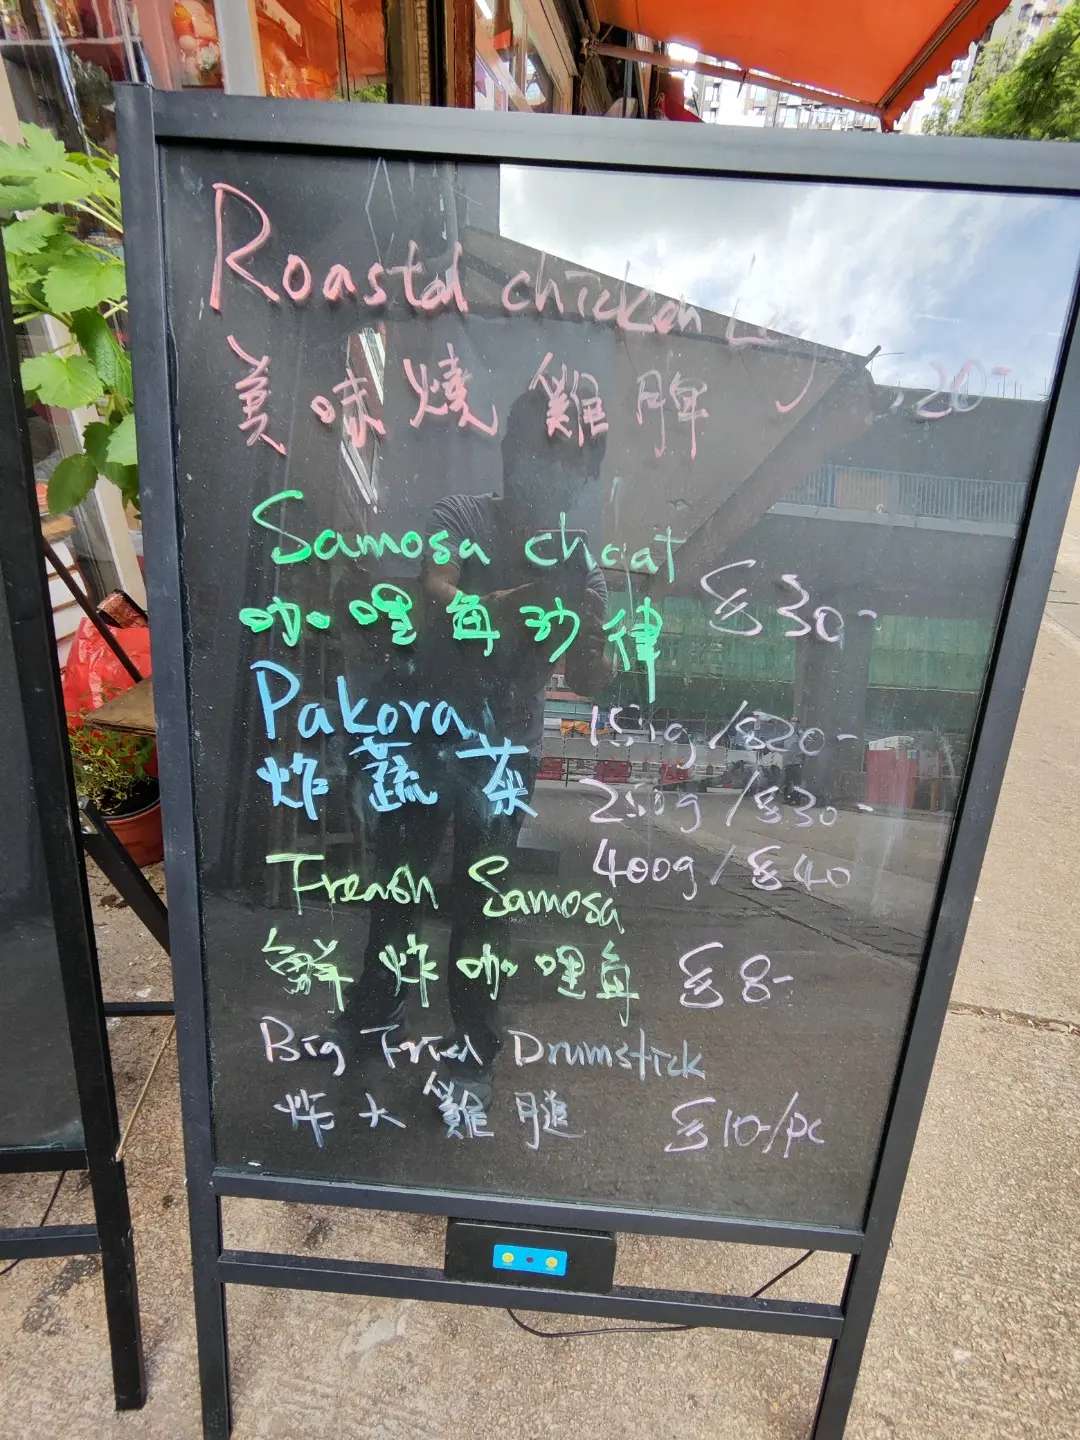 Roasted chicken L
美味燒雞脾 20-
Samosa chaat
咖哩角沙律 $30-
Pakora 150g/$20-
炸蔬菜 250g/$30-
400g/$40
Freash Samosa
鮮炸咖哩角 $8-
Big Fried Drumstick
炸大雞腿 $10-/pc